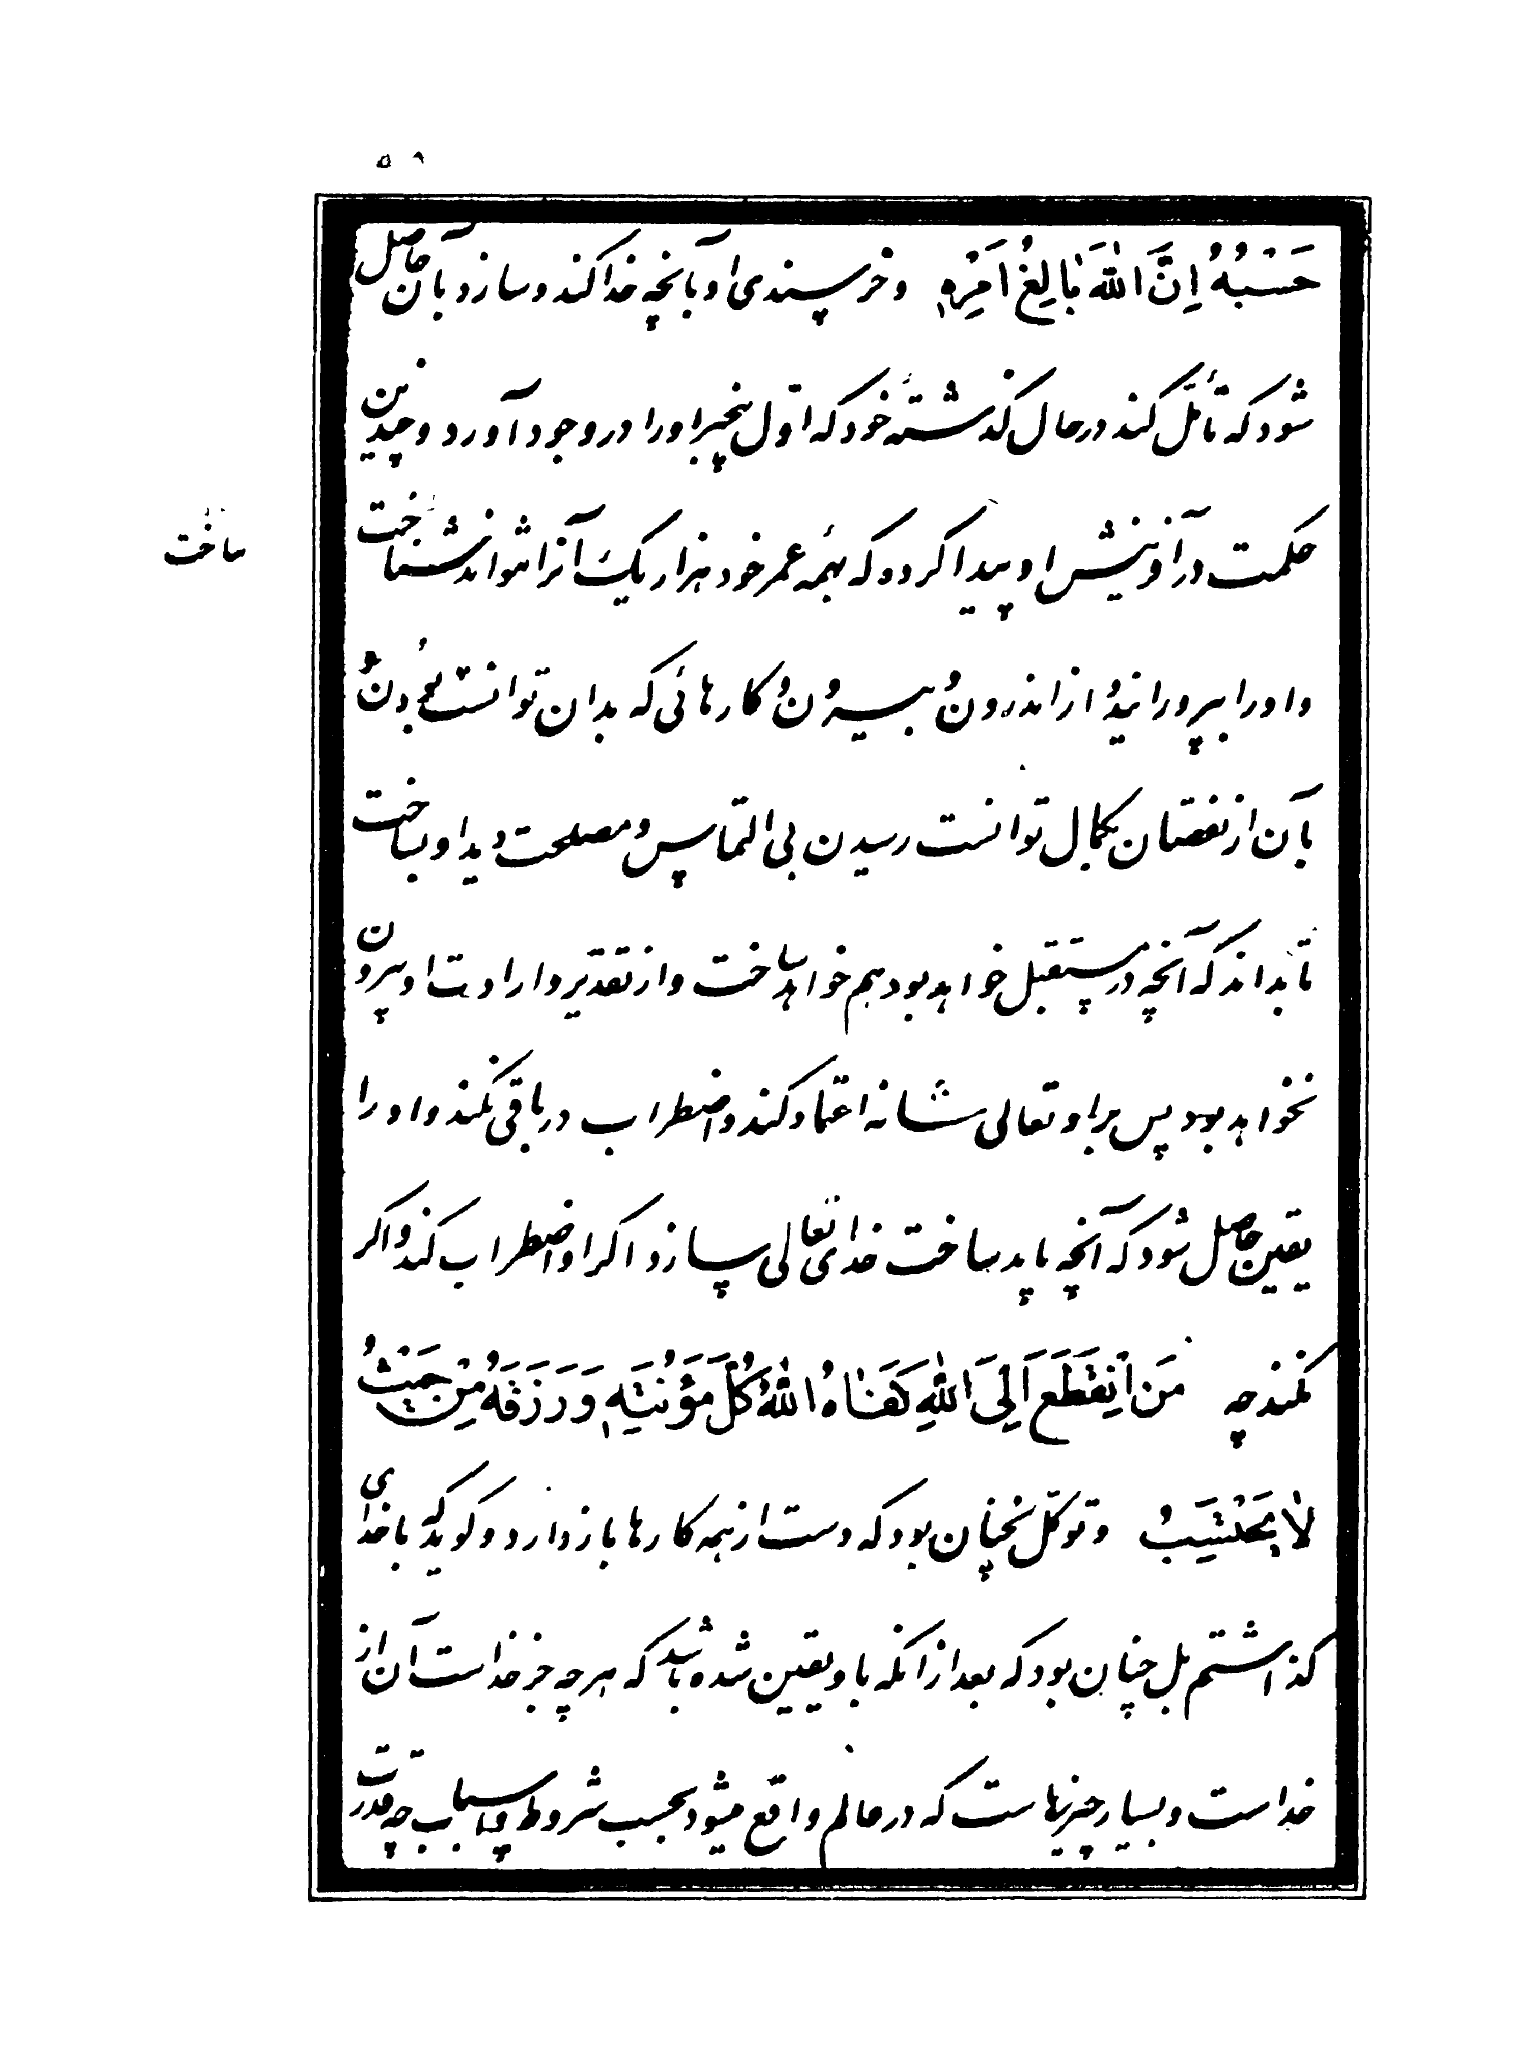 ۵۸
حَسْبُهُ اِنَّ اللّٰهَ بٰالِغُ اَمْرِهِ وخرسندی او بآنچه خدا کند و سازد بآن حاصل
شود که تأمّل کند در حال گذشته خود که اوّل بیخبر اورا در وجود آورد و چندین
حکمت در آفرینش او پیدا کرد که بهمه عمر خود هزار یک آنرا نتواند شناخت
ساخت
و اورا بپرورانید از اندرون و بیرون و کارهائی که بدان توانست بودن و
بآن از نقصان بکمال توانست رسیدن بی التماس و مصلحت دید او بساخت
تا بداند که آنچه در مستقبل خواهد بود هم خواهد ساخت و از تقدیر و ارادت او بیرون
نخواهد بود پس بر او تعالی شانه اعتماد کند و اضطراب در باقی نکند و اورا
یقین حاصل شود که آنچه باید ساخت خدای تعالی بسازد اگر او اضطراب کند و اگر
نکند چه مَنِ انْقَطَعَ اِلَی اللّٰهِ کَفٰاهُ اللّٰهُ کُلَّ مَؤُنَتِهِ وَ رَزَقَهُ مِنْ حَیْثُ
لٰا یَحْتَسِبُ و توکّل نچنان بود که دست از همه کارها باز دارد و گوید که با خدای
گذاشتم بل چنان بود که بعد از آنکه باو یقین شده باشد که هر چه جز خداست آن از
خداست و بسیار چیزهاست که در عالم واقع میشود بحسب شروط و اسباب چه قدرت